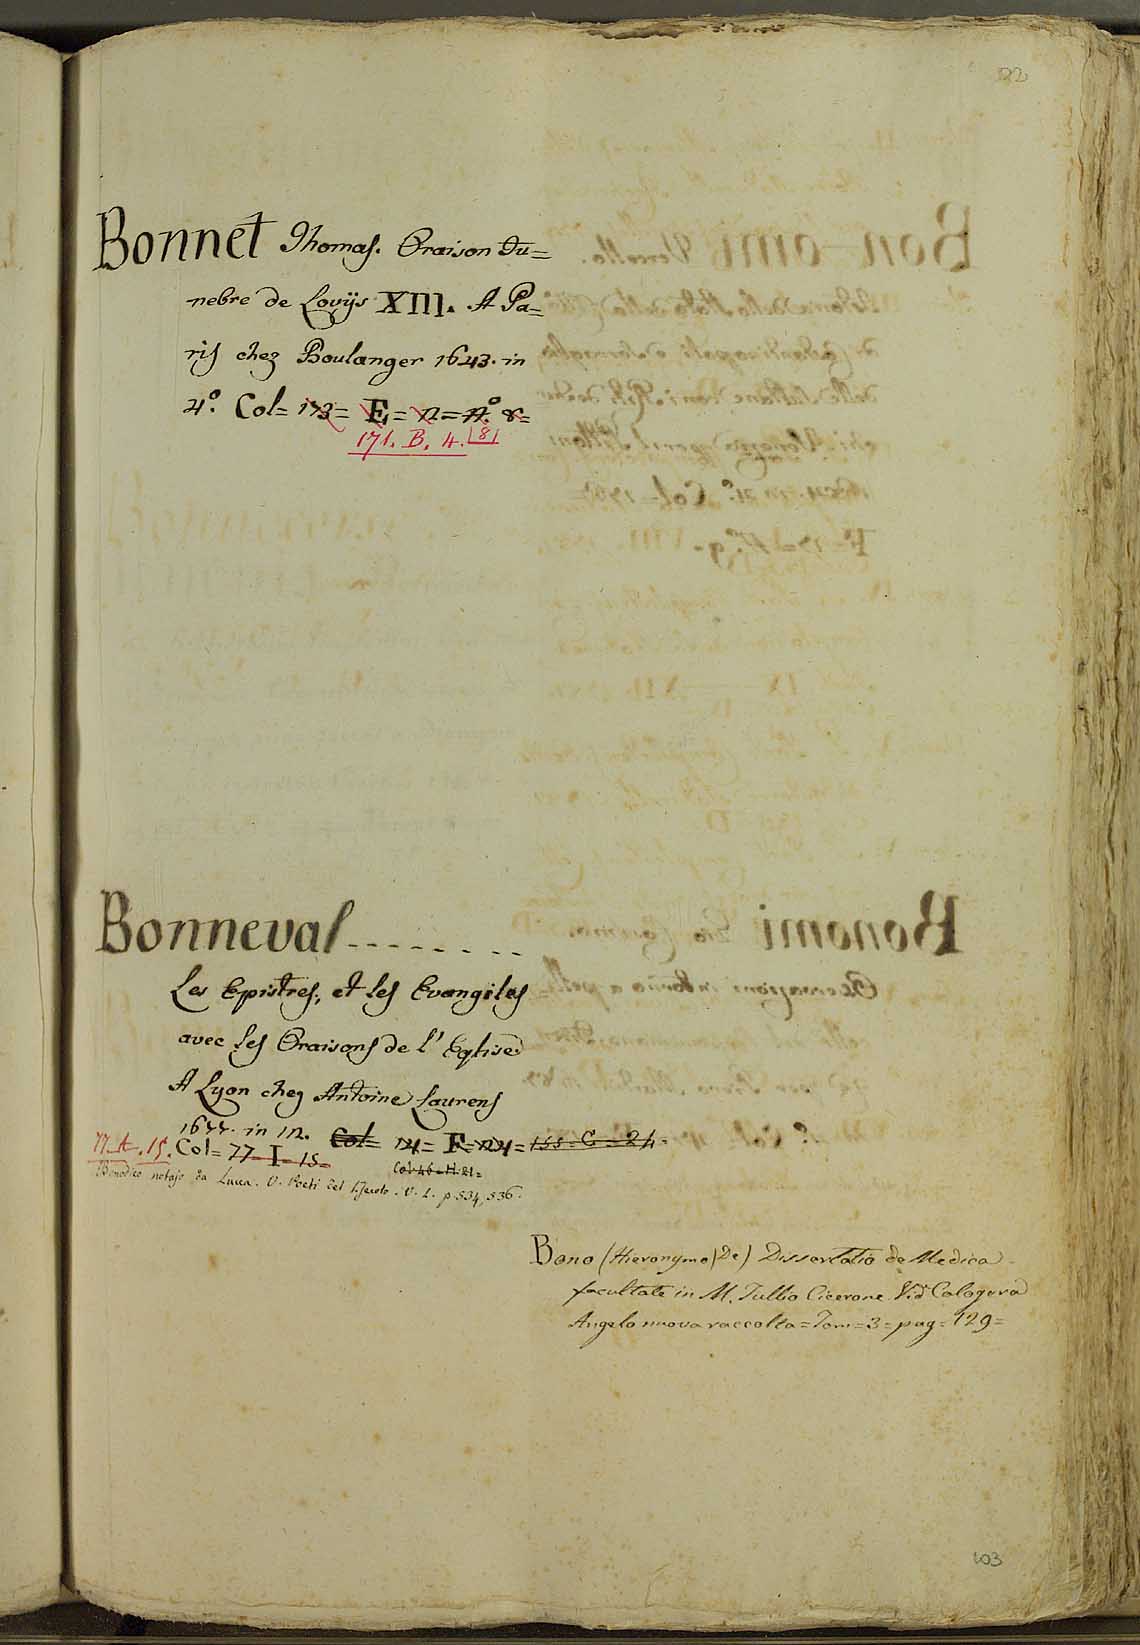 22
Bonnet Thomas. Oraison Fu=
nebre de Lovijs XIII. A Pa=
ris chez Boulanger 1643. in
4º. Col= 173= E= 12= Nº 8=
171. B. 4. 8
Bonneval
Les Epistres, et les Evangiles
avec les Oraisons de l'Eglise
A Lyon chez Antoine Laurens
1677. in 12. Col= 14= F= 24= 155= C= 24=
77. A. 15. Col= 77= I= 15=
Col. 46= H. 21=
notajo da Lucca. V. Poeti del
V. 1. p. 534, 536.
Bono (Hieronymo De) Dissertatio de Medica
facultate in M. Tullio Cicerone. Vid Calogerà
Angelo nuova raccolta= Tom= 3= pag= 129=
103